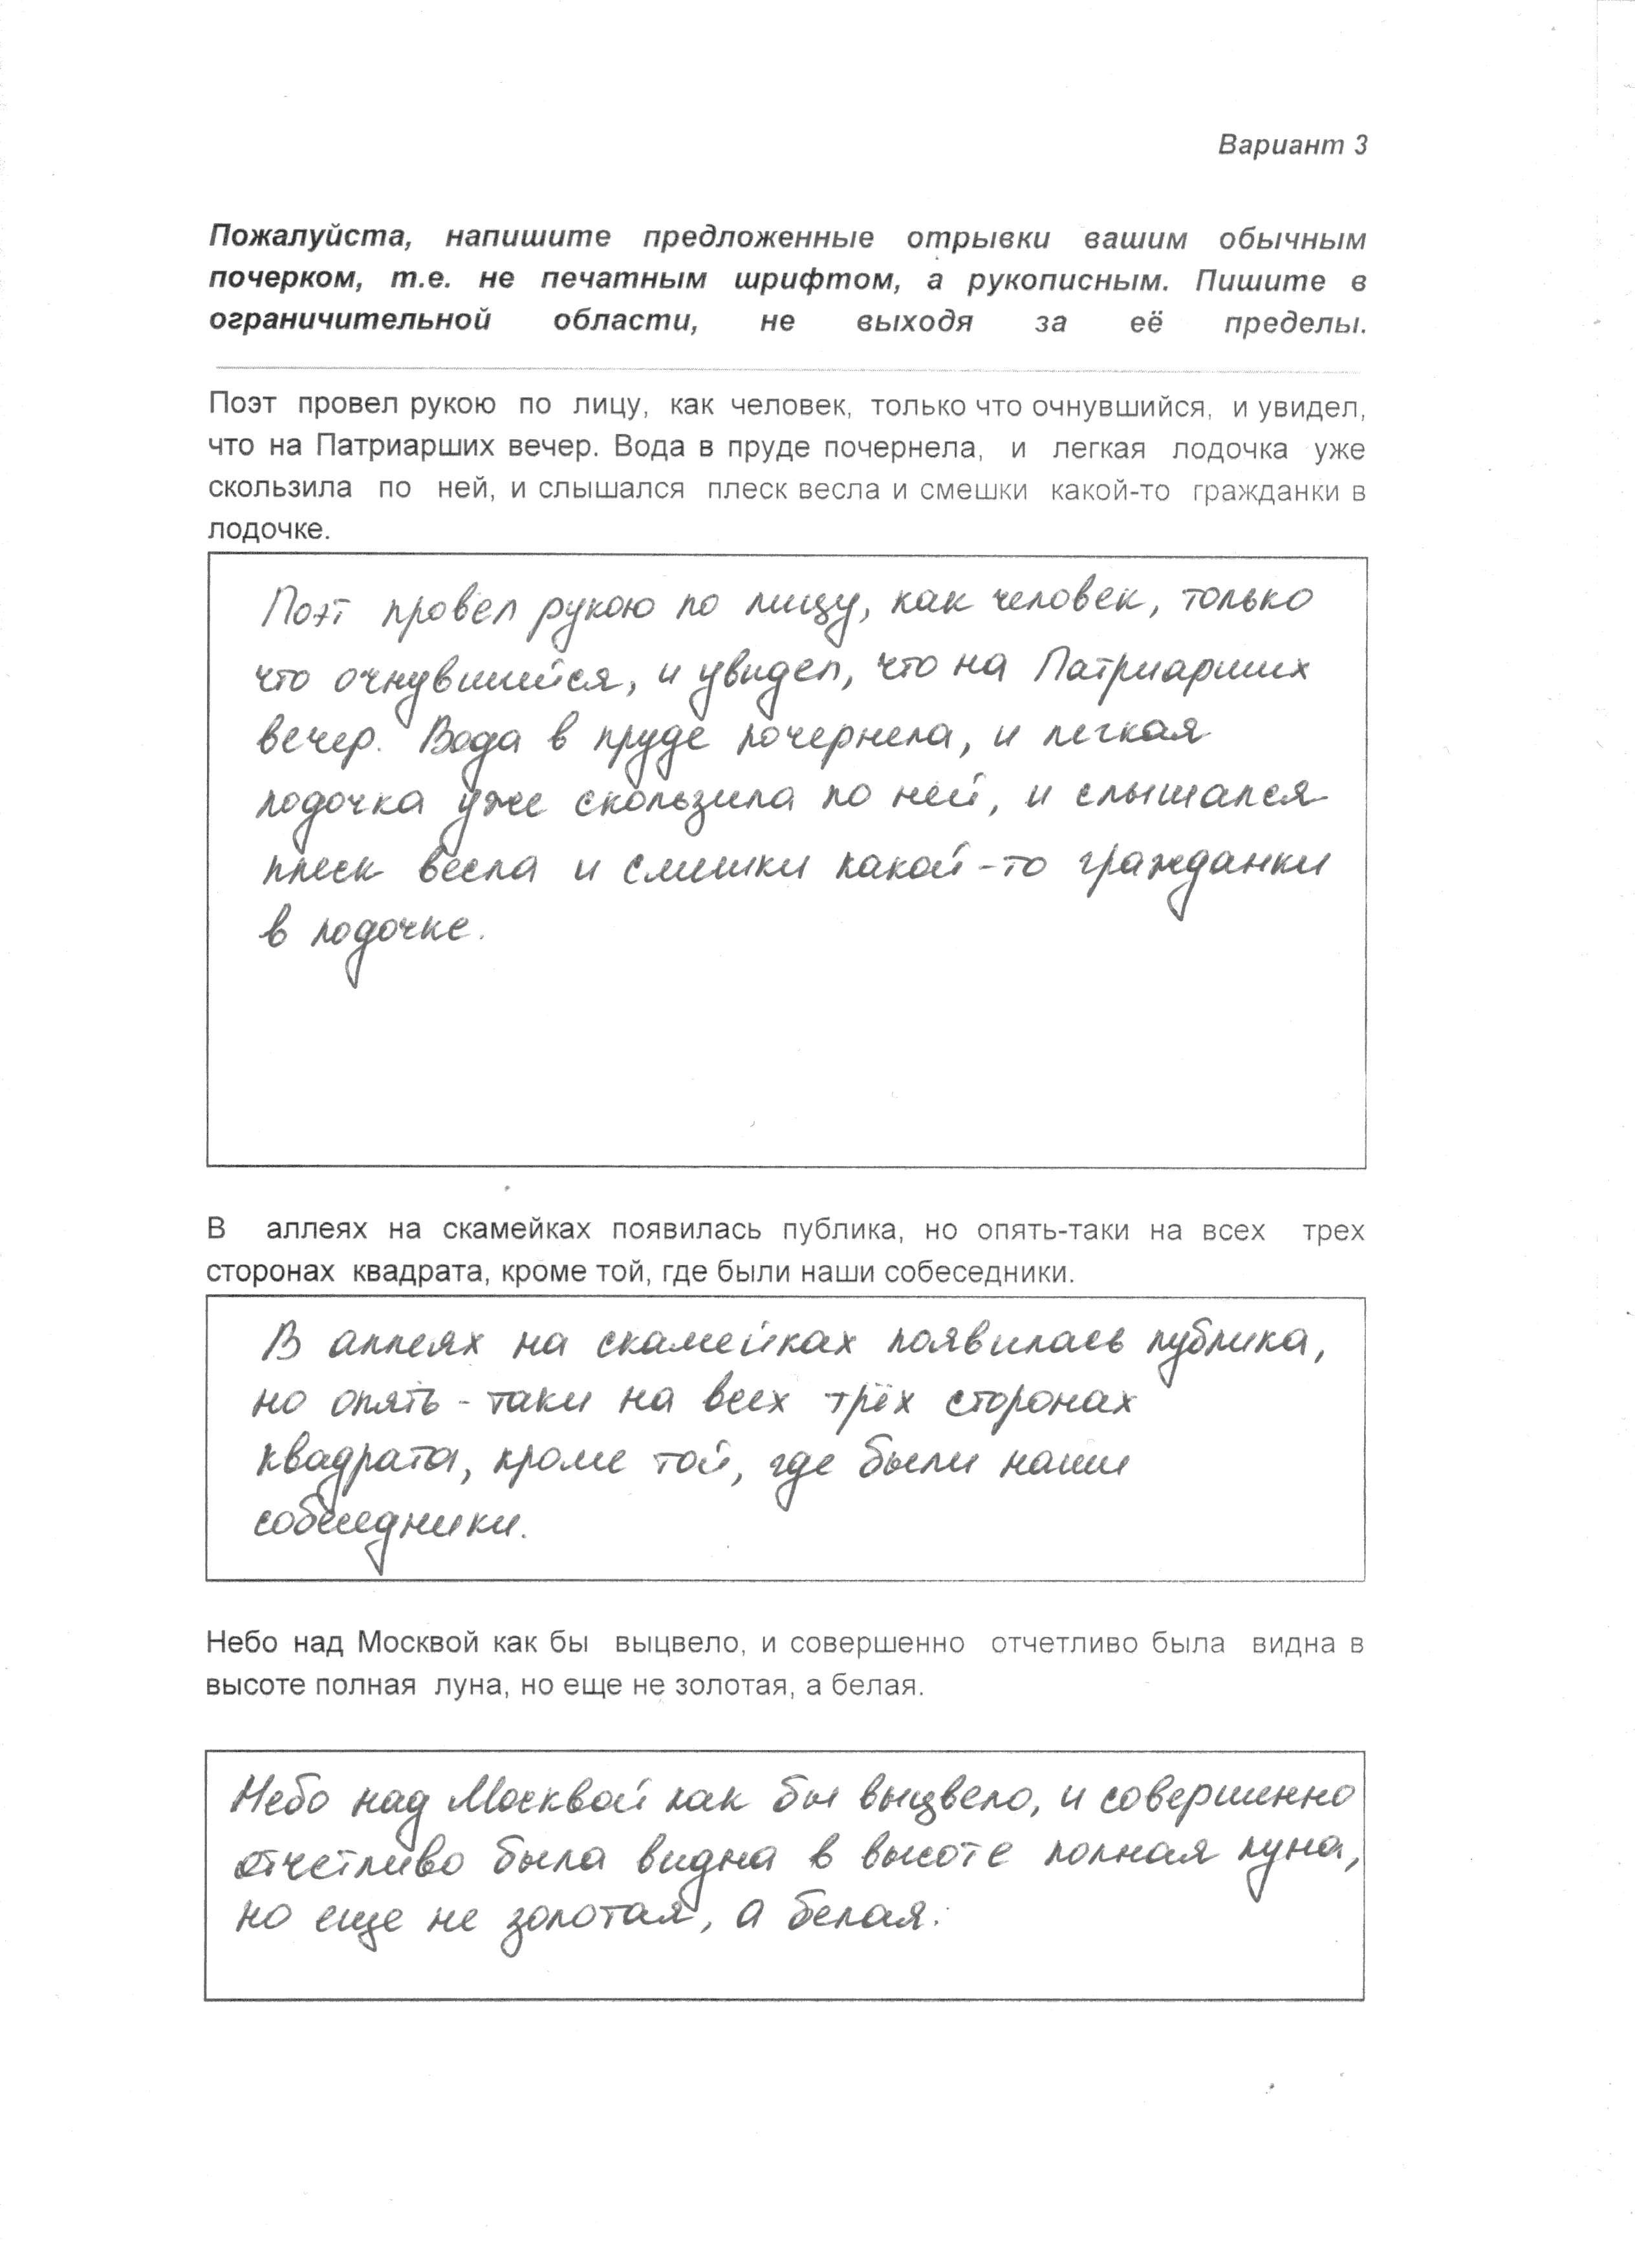 Вариант 3
Пожалуйста, напишите предложенные отрывки вашим обычным
почерком, т.е. не печатным шрифтом, а рукописным. Пишите в
ограничительной области, не выходя за её пределы.
Поэт провел рукою по лицу, как человек, только что очнувшийся, и увидел,
что на Патриарших вечер. Вода в пруде почернела, и легкая лодочка уже
скользила по ней, и слышался плеск весла и смешки какой-то гражданки в
лодочке.
Поэт провёл рукою по лицу, как человек, только
что очнувшийся, и увидел, что на Патриарших
вечер. Вода в пруде почернела, и легкая
лодочка уже скользила по ней, и слышался
плеск весла и смешки какой-то гражданки
в лодочке.
В аллеях на скамейках появилась публика, но опять-таки на всех трех
сторонах квадрата, кроме той, где были наши собеседники.
В аллеях на скамейках появилась публика,
но опять-таки на всех трёх сторонах
квадрата, кроме той, где были наши
собеседники.
Небо над Москвой как бы выцвело, и совершенно отчетливо была видна в
высоте полная луна, но еще не золотая, а белая.
Небо над Москвой как бы выцвело, и совершенно
отчетливо была видна в высоте полная луна,
но еще не золотая, а белая.